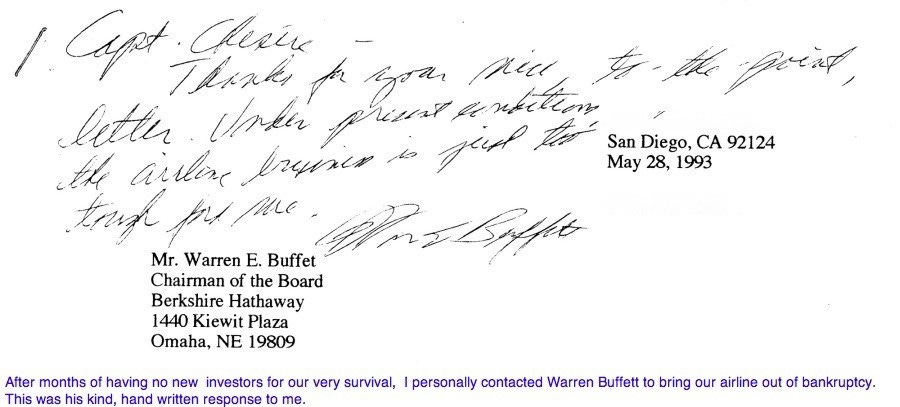 Capt. Chesire -
Thanks for your nice, to-the-point,
letter. Under present conditions,
the airline business is just too
tough for me.
Warren E Buffett
San Diego, CA 92124
May 28, 1993
Mr. Warren E. Buffet
Chairman of the Board
Berkshire Hathaway
1440 Kiewit Plaza
Omaha, NE 19809
After months of having no new investors for our very survival, I personally contacted Warren Buffett to bring our airline out of bankruptcy.
This was his kind, hand written response to me.